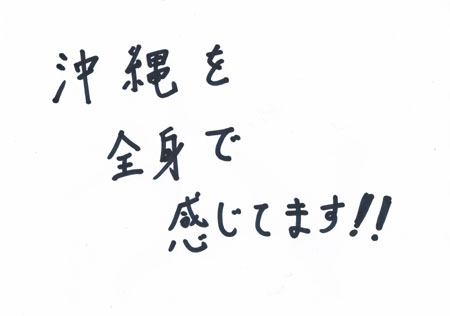 沖縄を
全身で
感じてます!!